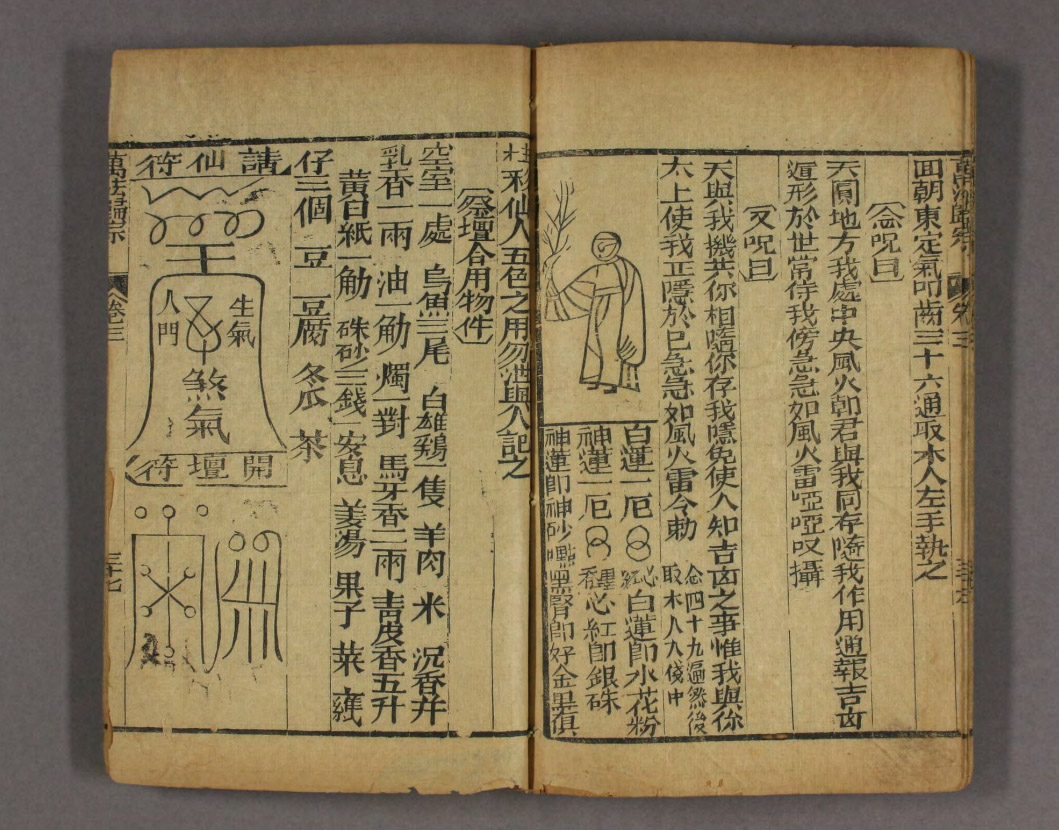 面朝東定氣叩齒三十六通取木人左手執之
念呪曰
天圓地方我處中央風火郎君與我同存隨我作用通報吉凶
遁形於世常侍我傍急急如風火雷啞啞叹攝
又呪曰
天與我機共你相隨你存我隱免使人知吉凶之事惟我與你
太上使我正隱於已急急如風火雷令勅
念四十九遍然後
取木人入袋中
白蓮一厄
心白蓮即水花粉
神蓮一厄
心紅即銀硃
神蓮即神砂
黑腎即好金墨俱
桂 仙人五色之用勿泄與人記之
祭壇合用物件
空室一處 烏魚三尾 白雄鷄一隻 羊肉 米 沉香并
乳香一兩 油一觔 燭一對 馬牙香二兩 青皮香五升
黃白紙一觔 硃砂三錢 安息 姜湯 果子 菜
仔三個 豆 豆腐 冬瓜 茶
請仙符
生氣
人門
煞氣
開壇符
萬法歸宗
卷三
三十七
萬法歸宗
卷三